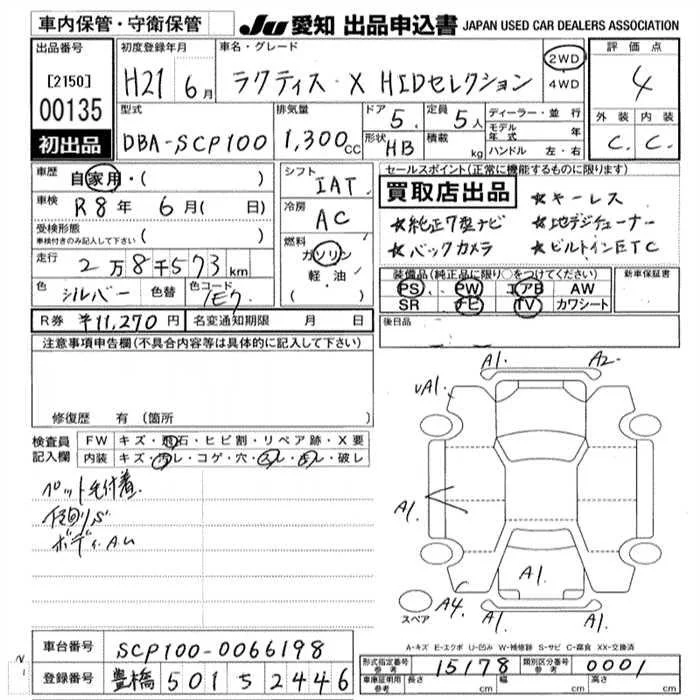 車内保管・守衛保管
JU 愛知 出品申込書 JAPAN USED CAR DEALERS ASSOCIATION
出品番号
[2150]
00135
初出品
初度登録年月
H21 6月
車名・グレード
ラクティス・X HIDセレクション
2WD
4WD
評価点
4
外装 内装
C. C.
型式
DBA-SCP100
排気量
1,300cc
ドア 5
定員 5人
形状 HB
積載 kg
ディーラー・並行
モデル年式 年
ハンドル 左・右
車歴 自家用・( )
車検 R8年 6月( 日)
受検形態
車検付きのみ記入して下さい ( )
走行 2万8千573km
色 シルバー 色替 色コード 1E7
シフト IAT
冷房 AC
燃料
ガソリン
軽油
( ・ )
セールスポイント(正常に機能するものに限ります)
買取店出品
☆キーレス
☆純正7型ナビ ☆地デジチューナー
☆バックカメラ ☆ビルトインETC
装備品(純正品に限り○をつけてください)
PS PW エアB AW
SR ナビ TV カワシート
新車保証書
後日品
R券 ¥11,270円 名変通知期限 月 日
注意事項申告欄(不具合内容等は具体的に記入して下さい)
修復歴 有(箇所 )
検査員記入欄
FW キズ・飛石・ヒビ割・リペア跡・X要
内装 キズ・汚レ・コゲ・穴・スレ・・破レ
ペット毛付着
ボディ
A1. A2.
A1.
A1.
A1.
A4. A1. A1.
スペア
A-キズ E-エクボ U-凹み W-補修跡 S-サビ C-腐食 XX-交換済
車台番号 SCP100-0066198
登録番号 豊橋 501 5 2446
形式指定番号 参考 15178 類別区分番号 参考 0001
車庫証明用 参考 長さ cm 幅 cm 高さ cm